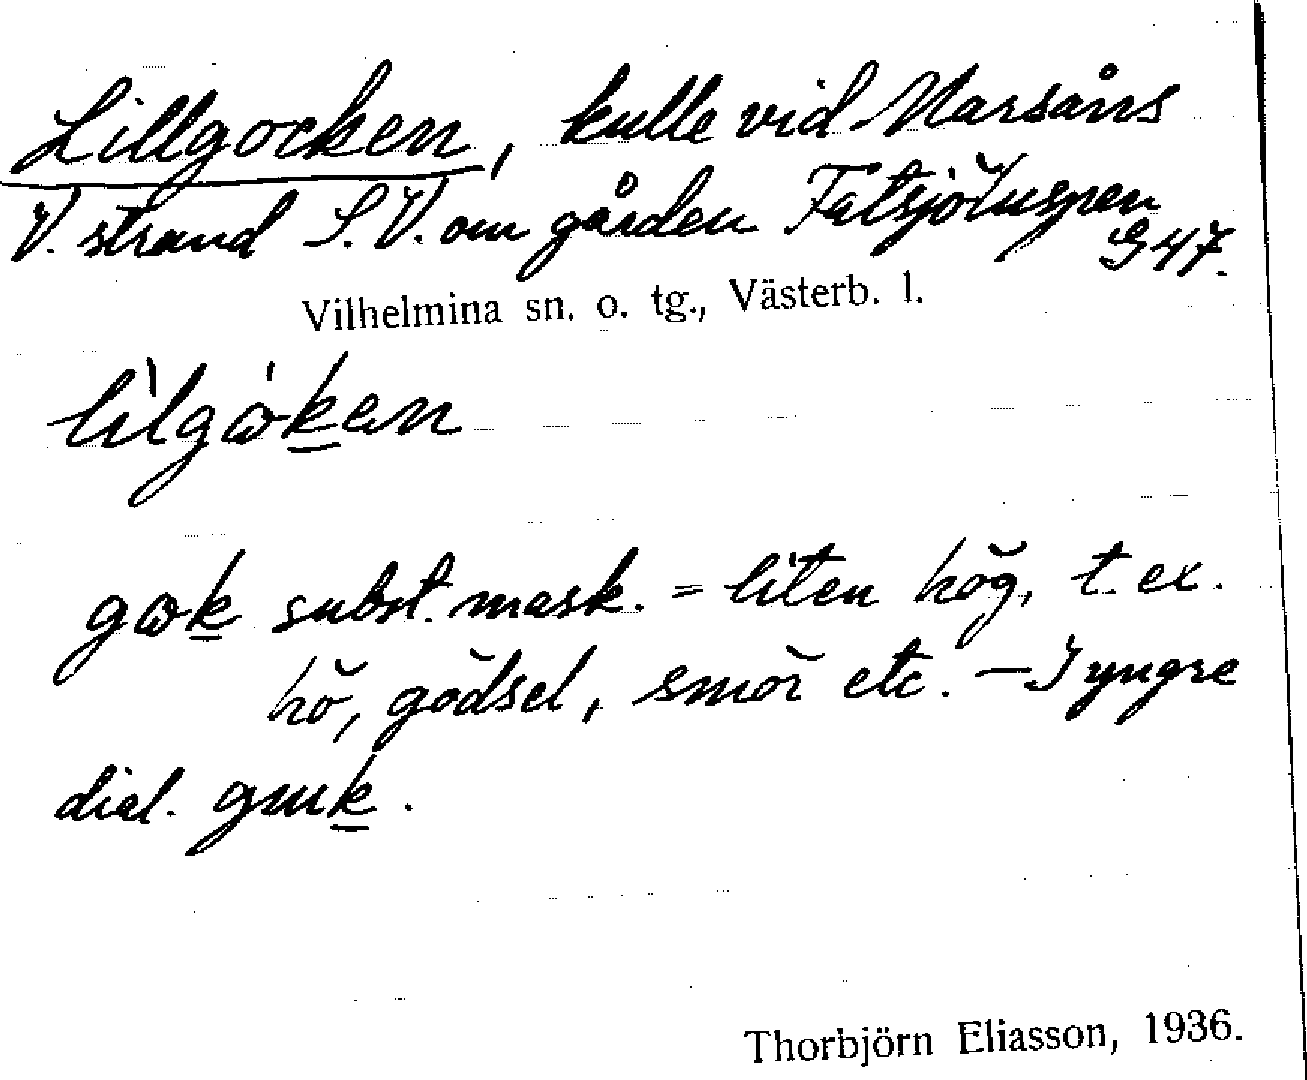 Lillgocken, kulle vid Marsåns
V. strand S.V. om gården Fatsjöluspen
G 47.
Vilhelmina sn. o. tg., Västerb. l.
lìlgωkan
gωk subst. mask. = liten hög, t. ex.
hö, gödsel, smör etc. – I yngre
dial. guuk.
Thorbjörn Eliasson, 1936.